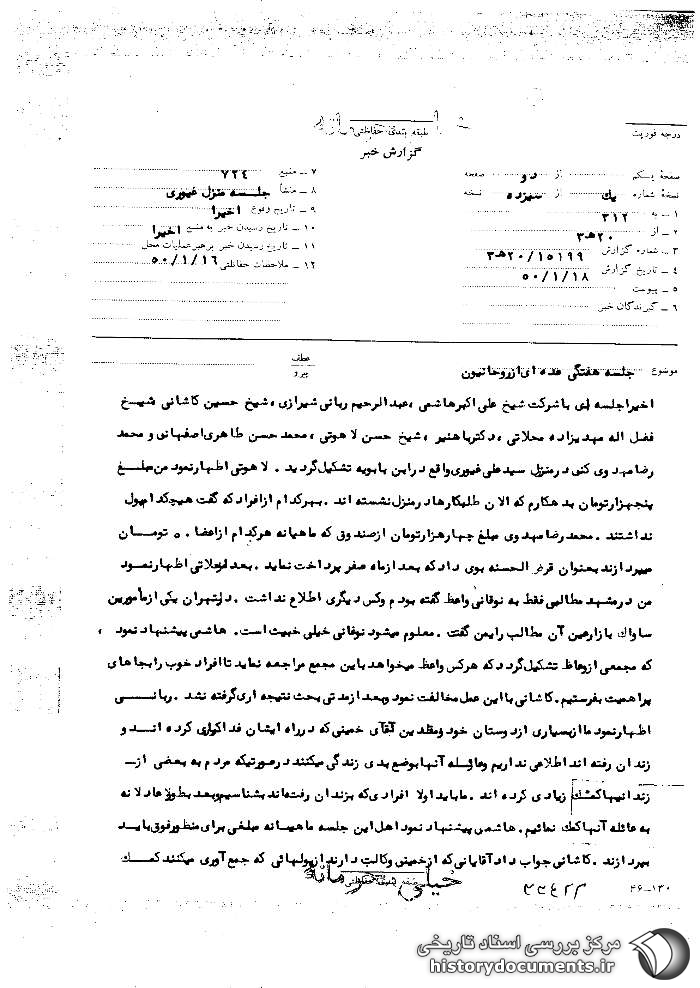 طبقه بندی حفاظتی
گزارش خبر
درجه فوریت
صفحه یکم از دو صفحه
نسخه شماره یك از سیزده نسخه
۱ ـ به ۳۱۲
۲ ـ از ۲۰هـ۳
۳ ـ شماره گزارش ۲۰/۱۵۱۹۹هـ۳
۴ ـ تاریخ گزارش ۵۰/۱/۱۸
۵ ـ پیوست
۶ ـ گیرندگان خبر
۷ ـ منبع ۷۲٤
۸ ـ منشأ جلسه منزل غیوری
۹ ـ تاریخ وقوع اخیرا
۱۰ ـ تاریخ رسیدن خبر به منبع اخیرا
۱۱ ـ تاریخ رسیدن خبر برهبر عملیات محل
۱۲ ـ ملاحضات حفاظتی ۵۰/۱/۱٦
عطف
پیرو
موضوع جلسه هفتگی عده ای از روحانیون
اخیرا جلسه ای با شرکت شیخ علی اکبر هاشمی ، عبدالرحیم ربانی شیرازی ، شیخ حسین کاشانی ، شیخ
فضل اله مهدیزاده محلاتی ، دکتر باهنر ، شیخ حسن لاهوتی ، محمد حسن طاهری اصفهانی و محمد
رضا مهدوی کنی در منزل سید علی غیوری واقع در ابن بابویه تشکیل گردید . لاهوتی اظهار نمود من مبلغ
پنجهزار تومان بدهکارم که الان طلبکارها در منزل نشسته اند . بهر کدام از افراد که گفت هیچکدام پول
نداشتند . محمد رضا مهدوی مبلغ چهار هزار تومان از صندوق که ماهیانه هر کدام از اعضا ۵۰ تومان
میپردازند بعنوان قرض الحسنه بوی داد که بعد از ماه صفر پرداخت نماید . بعد محلاتی اظهار نمود
من در مشهد مطالبی فقط به نوقانی واعظ گفته بودم و کس دیگری اطلاع نداشت . در تهران یکی از مأمورین
ساواك بازار عین آن مطالب را بمن گفت . معلوم میشود نوقانی خیلی خبیث است . هاشمی پیشنهاد نمود ،
که مجمعی از وعاظ تشکیل گردد که هرکس واعظ میخواهد باین مجمع مراجعه نماید تا افراد خوب را بجاهای
پراهمیت بفرستیم . کاشانی با این عمل مخالفت نمود و بعد از مدتی بحث نتیجه ای گرفته نشد . ربانی
اظهار نمود ما از بسیاری از دوستان خود و مقلدین آقای خمینی که در راه ایشان فداکاری کرده اند و
زندان رفته اند اطلاعی نداریم و عائله آنها بوضع بدی زندگی میکنند در صورتیکه مردم به بعضی از ـ
زندانیها کمك زیادی کرده اند . ما باید اولا افرادی که بزندان رفته‌اند بشناسیم و بعد بطور عادلانه
به عائله آنها کمك نمائیم . هاشمی پیشنهاد نمود اهل این جلسه ماهیانه مبلغی برای منظور فوق باید
بپردازند . کاشانی جواب داد آقایانی که از خمینی وکالت دارند از پولهائی که جمع آوری میکنند کمك
خیلی محرمانه
طبقه بندی حفاظتی
۴۶-۱۳۰
مرکز بررسی اسناد تاریخی
historydocuments.ir